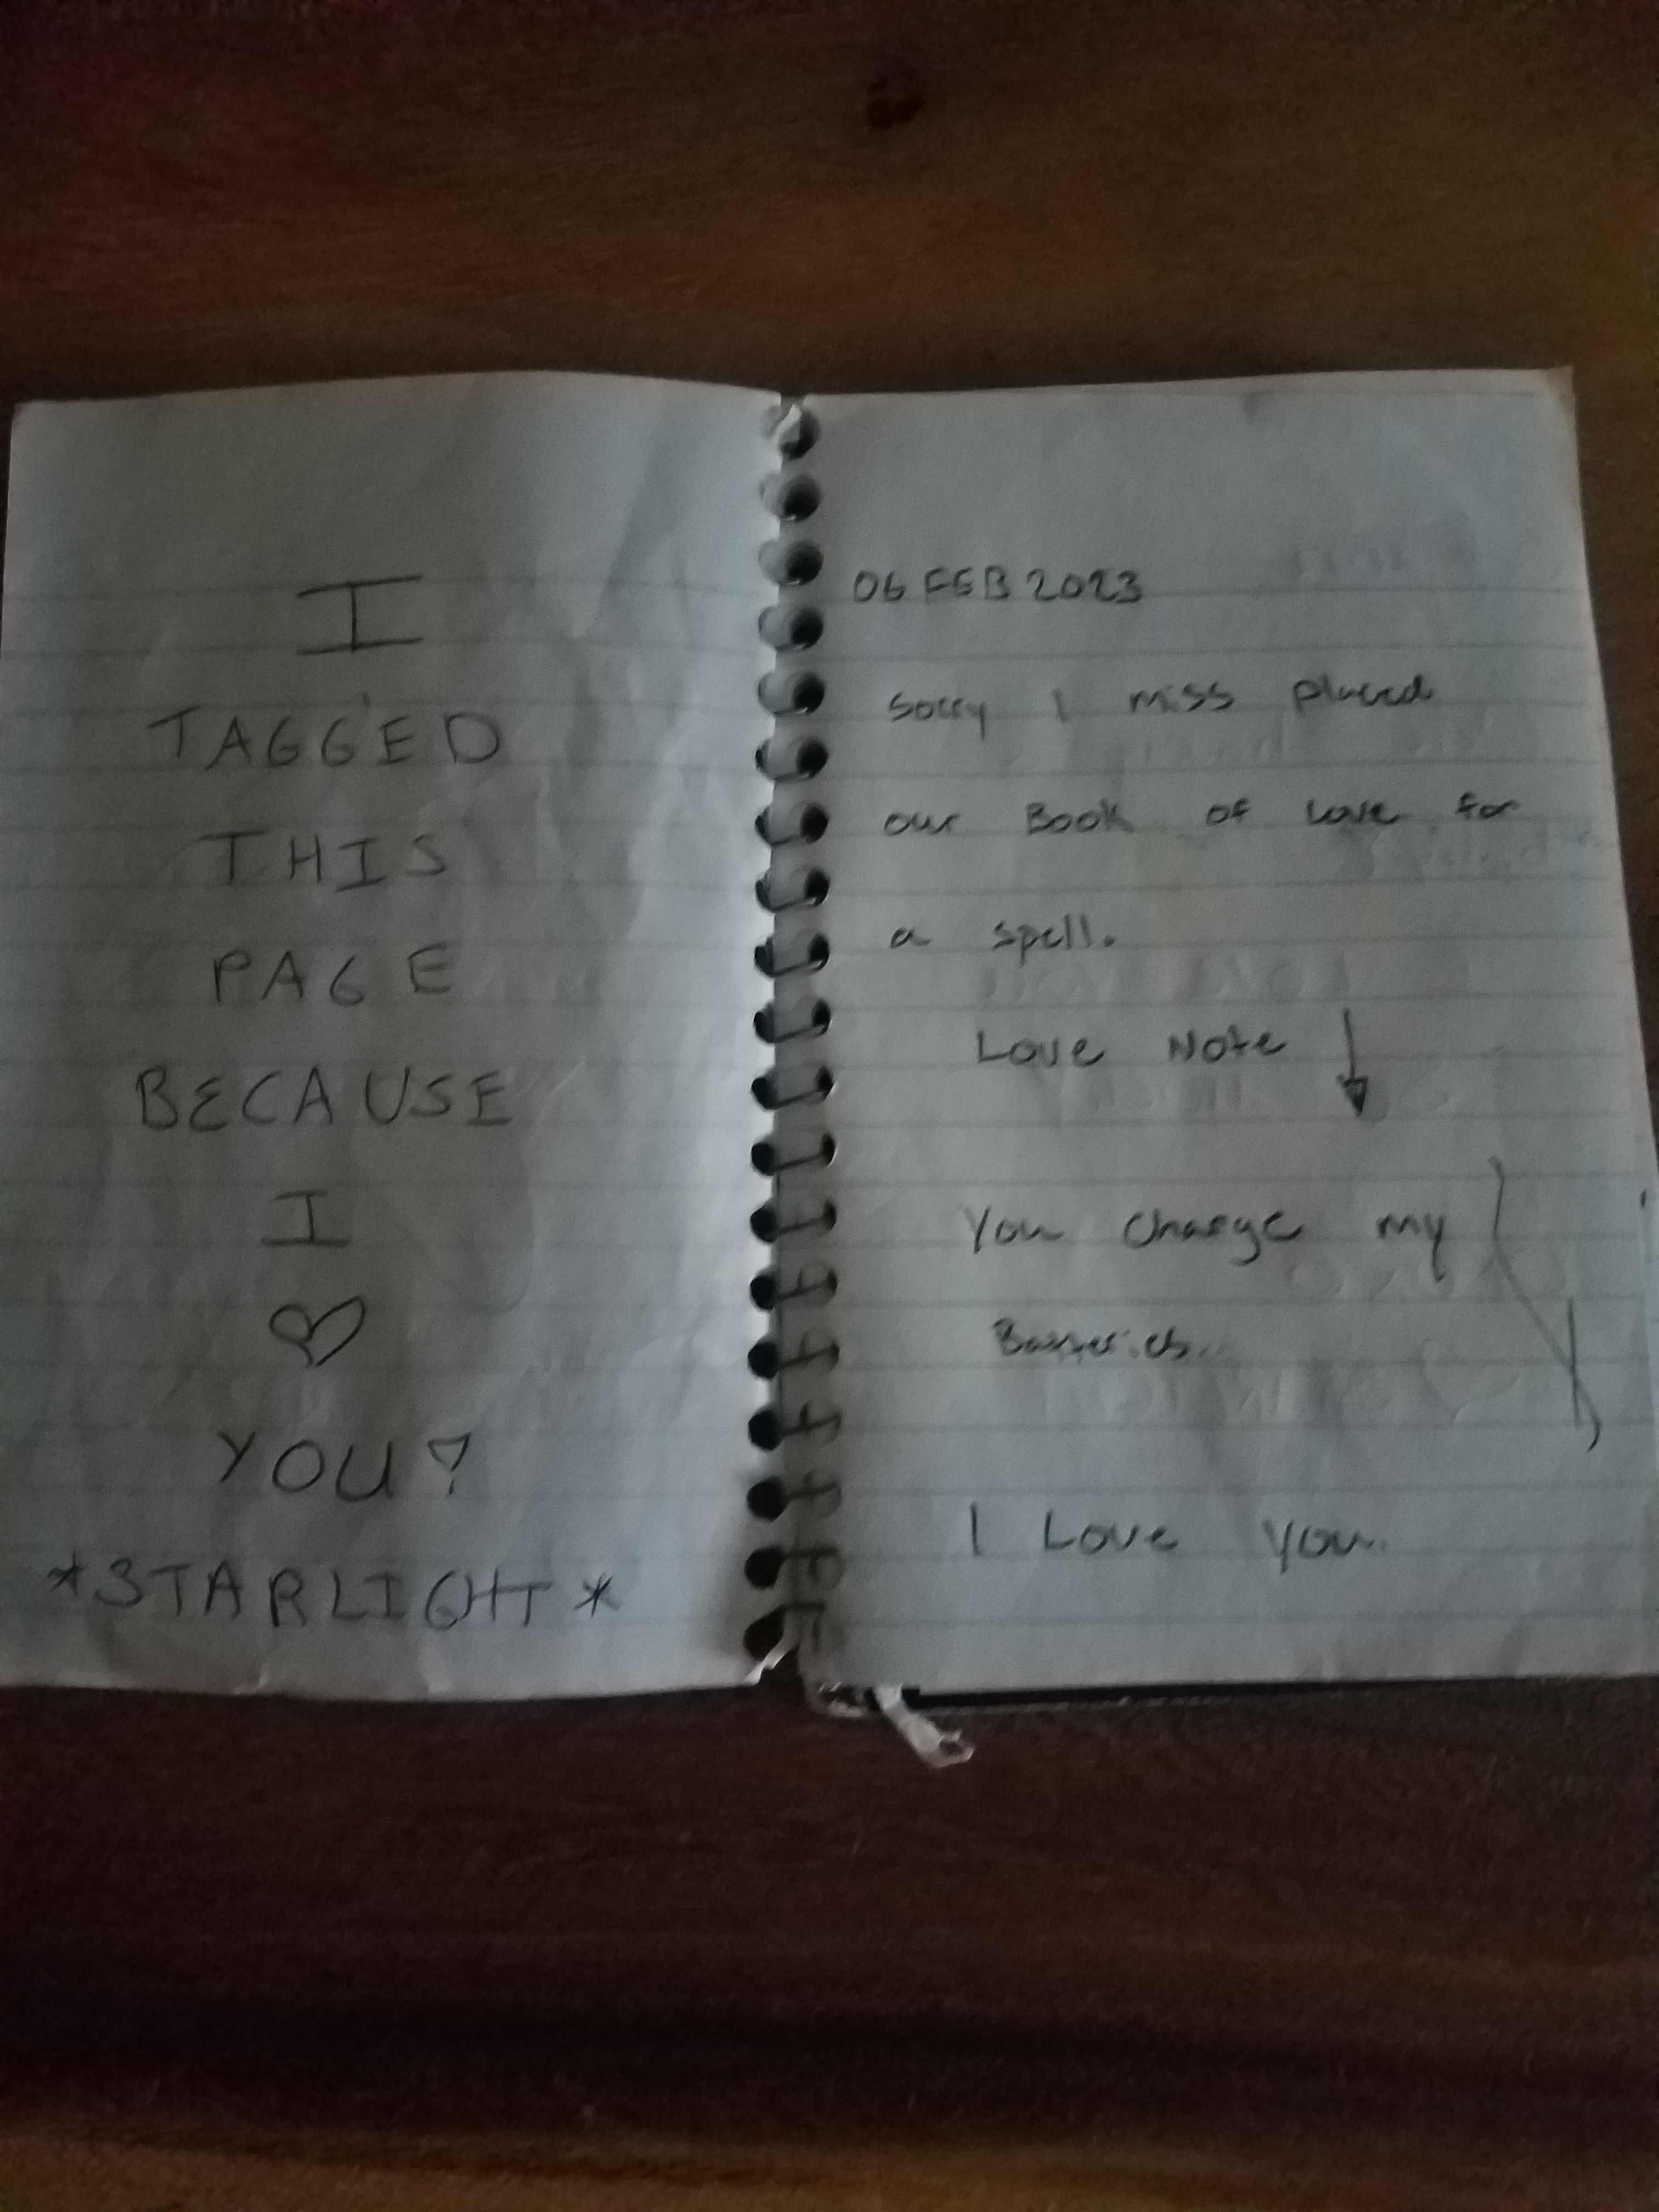 I
TAGGED
THIS
PAGE
BECAUSE
I
♡
YOU?
*STARLIGHT*
06 FEB 2023
Sorry I miss placed
our Book of Love for
a spell.
Love Note ↓
You Charge my
Batteries.
I Love You.